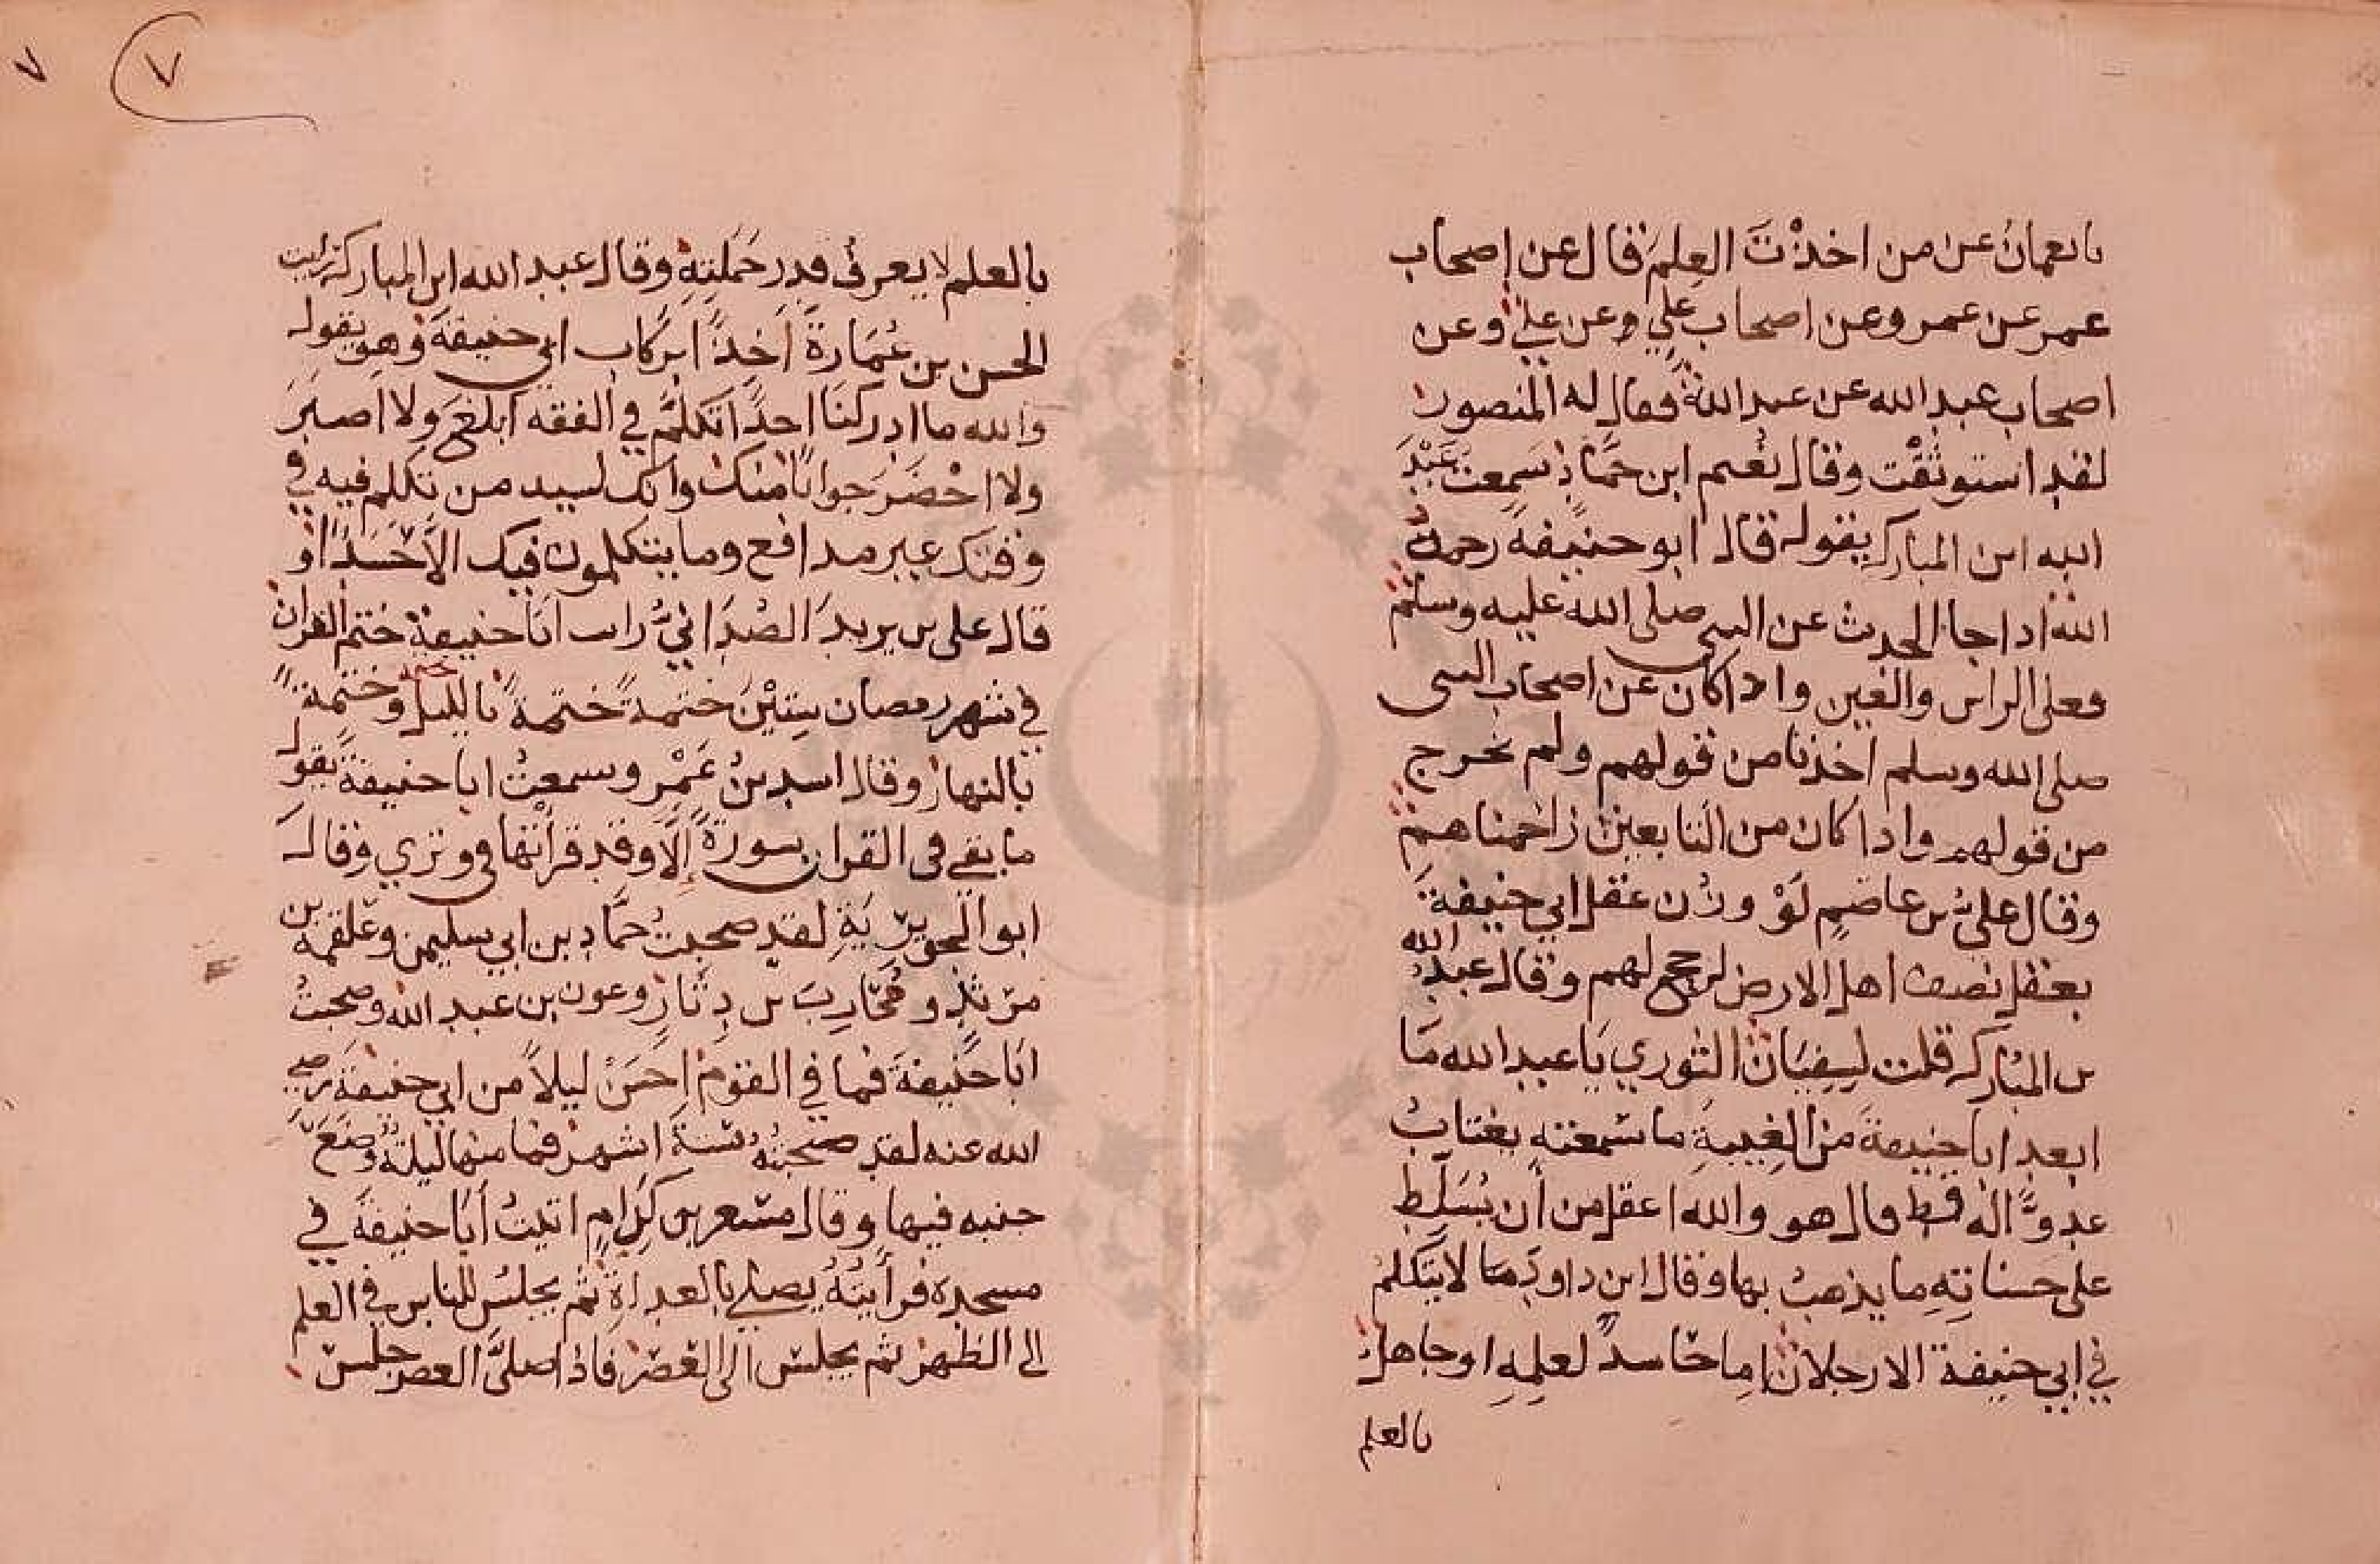 يا نعمان عن من اخذت العلم قال عن اصحاب
عمر عن عمر وعن اصحاب علي وعن علي وعن
اصحاب عبد الله عن عبد الله فقال له المنصور
لقد استوثقت وقال نعيم ابن حماد سمعت عبد
الله ابن المبارك يقول قال ابو حنيفة رحمه
الله اذا جا الحديث عن النبي صلى الله عليه وسلم
فعلى الراس والعين واذا كان عن اصحاب النبي
صلى الله وسلم اخذنا من قولهم ولم نخرج
من قولهم واذا كان من التابعين زاحمناهم
وقال علي بن عاصم لو وزن عقل ابي حنيفة
بعقل نصف اهل الارض لرجح لهم وقال عبد الله
بن المبارك قلت لسفيان الثوري يا عبد الله ما
ابعد ابا حنيفة من الغيبة ما سمعته يغتاب
عدوا له قط قال هو والله اعقل من أن يسلط
على حسناته ما يذهب بها وقال ابن داود لا يتكلم
في ابي حنيفة الا رجلان اما حاسد لعلمه او جاهل
بالعلم
٧
٧
بالعلم لا يعرف قدر حملته وقال عبد الله ابن المبارك رايت
الحسن بن عمارة آخذا بركاب ابي حنيفة وهو يقول
والله ما ادركنا احدا تكلم في الفقه ابلغ ولا اصبر
ولا احضر جوابا منك وانك لسيد من تكلم فيه في
وقتك غير مدافع وما يتكلمون فيك الا حسدا او
قال علي بن يزيد الصدائي رايت ابا حنيفة ختم القران
في شهر رمضان ستين ختمة ختمة بالليل وختمة
بالنهار وقال اسد بن عمر وسمعت ابا حنيفة يقول
ما بقي في القران سورة إلا وقد قرأتها في وتري وقال
ابو الحويرية لقد صحبت حماد بن ابي سليمن وعلقمة بن
مرثد ومحارب بن دثار وعون بن عبد الله وصحبت
ابا حنيفة فما في القوم احسن ليلا من ابي حنيفة رضي
الله عنه لقد صحبته ستة اشهر فما منها ليلة وضع
جنبه فيها وقال مسعر بن كدام اتيت أبا حنيفة في
مسجده فرأيته يصلي بالغداة ثم يجلس للناس في العلم
الى الظهر ثم يجلس الى العصر فاذا صلى العصر جلس